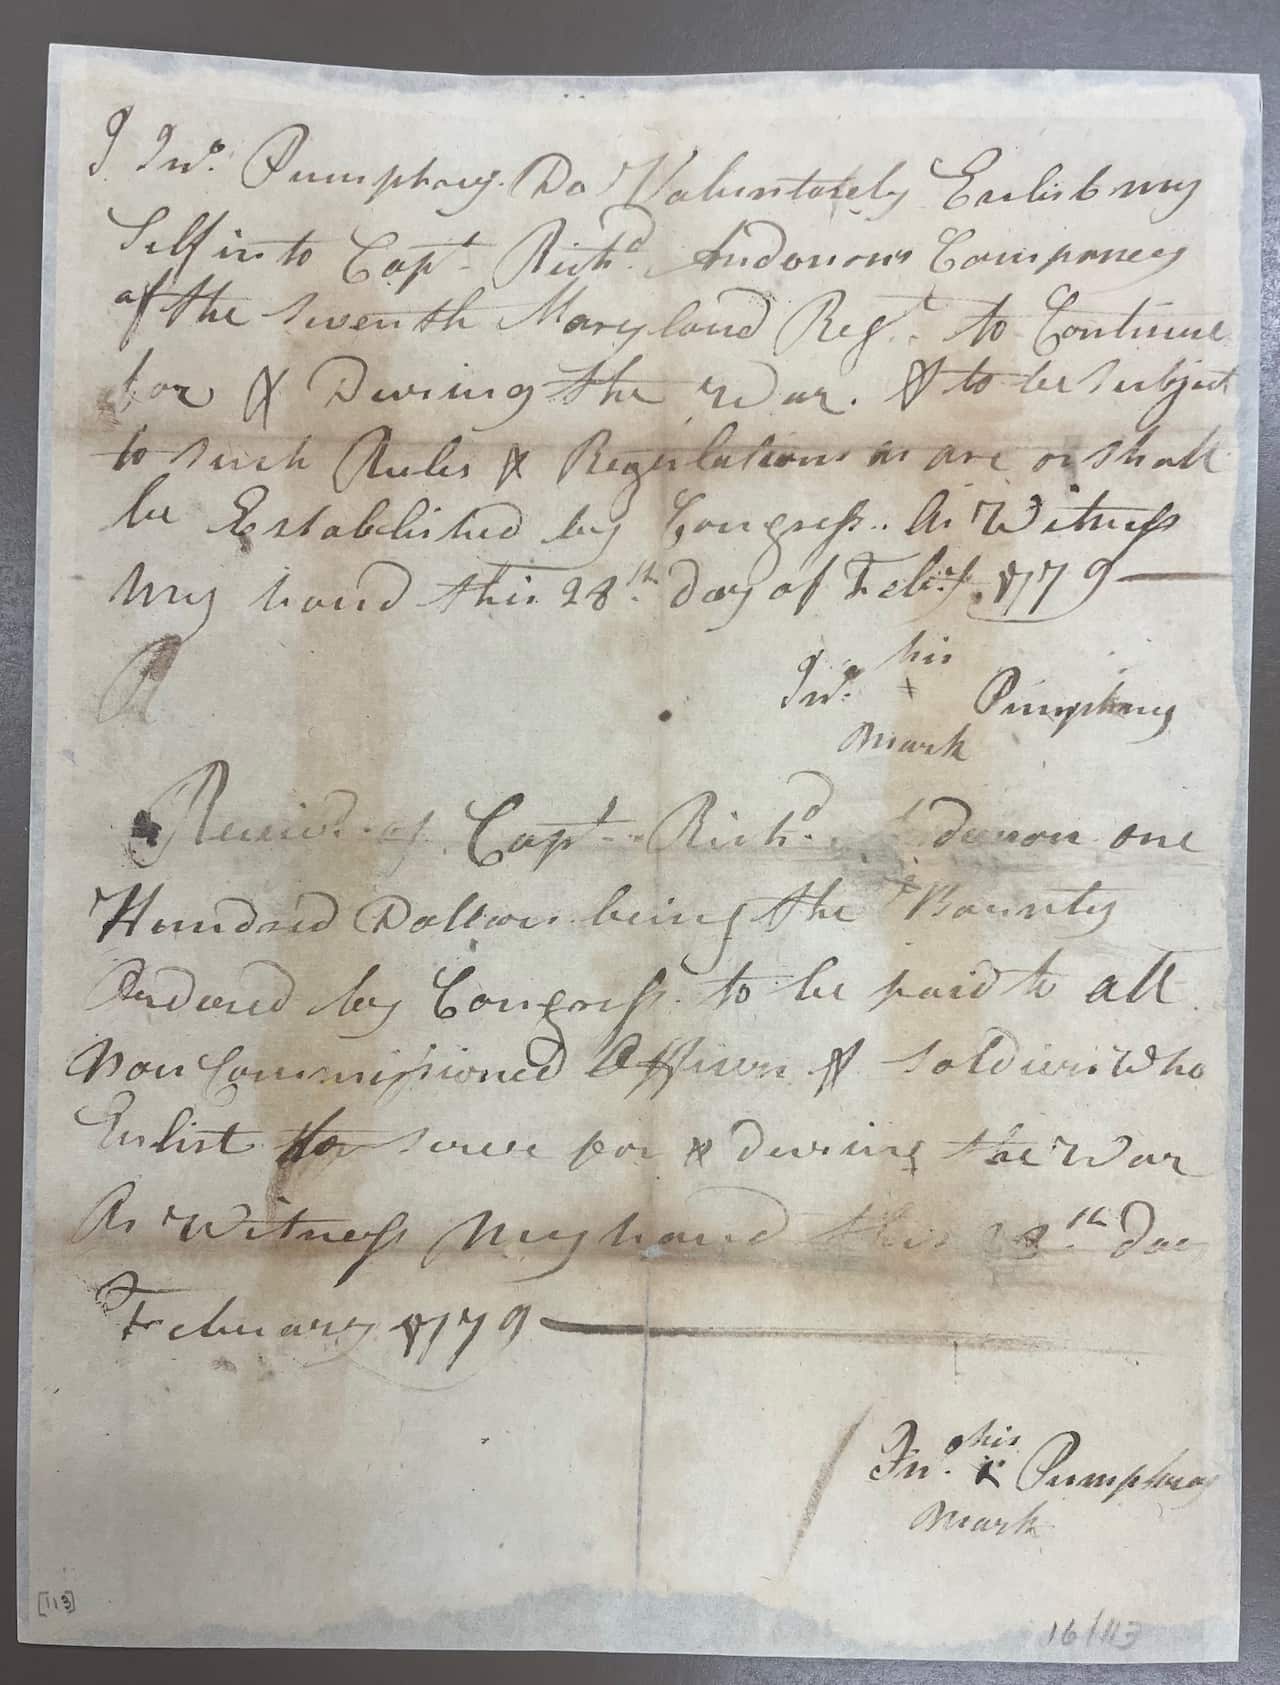 I Jno. Pumphrey. Do Voluntarely Enlist my
Self into Capt. Richd. Andersons Companey
of the Seventh Maryland Regt. to Continue
for & During the War. & to be subject
to such Rules & Regulations as are or shall
be Established by Congress. As Witness
My hand this 28th. Day of Feby. 1779
his
Jno. + Pumphrey
Mark
Receivd. of Capt. Richd. Anderson one
Hundred Dollars being the Bounty
Ordered by Congress to be paid to all
Non Commissioned Officers & Soldiers Who
Enlist to serve for & during the War
As Witness My hand this 28th. Day
February 1779
his
Jno. x Pumphrey
Mark
[113]
16/113